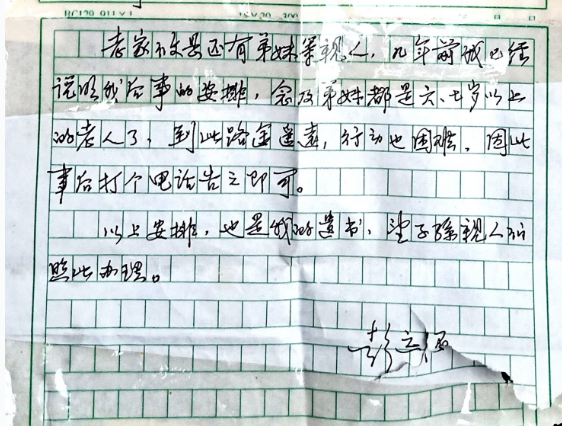 老家不是还有弟妹等亲人，九年前我已经
说明我后事的安排，念及弟妹都是六、七岁以上
的老人了，到此路金遥远，行动也困难，因此
事后打个电话告之即可。
以上安排，也是我的遗书，望子孙亲人们
照此办理。
彭立